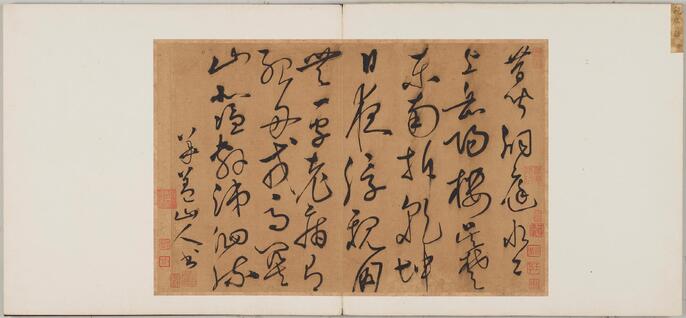 昔聞洞庭水今
上岳陽樓吳楚
東南坼乾坤
日夜浮親朋
無一字老病有
孤舟戎馬關
山北憑軒涕泗流
山人書